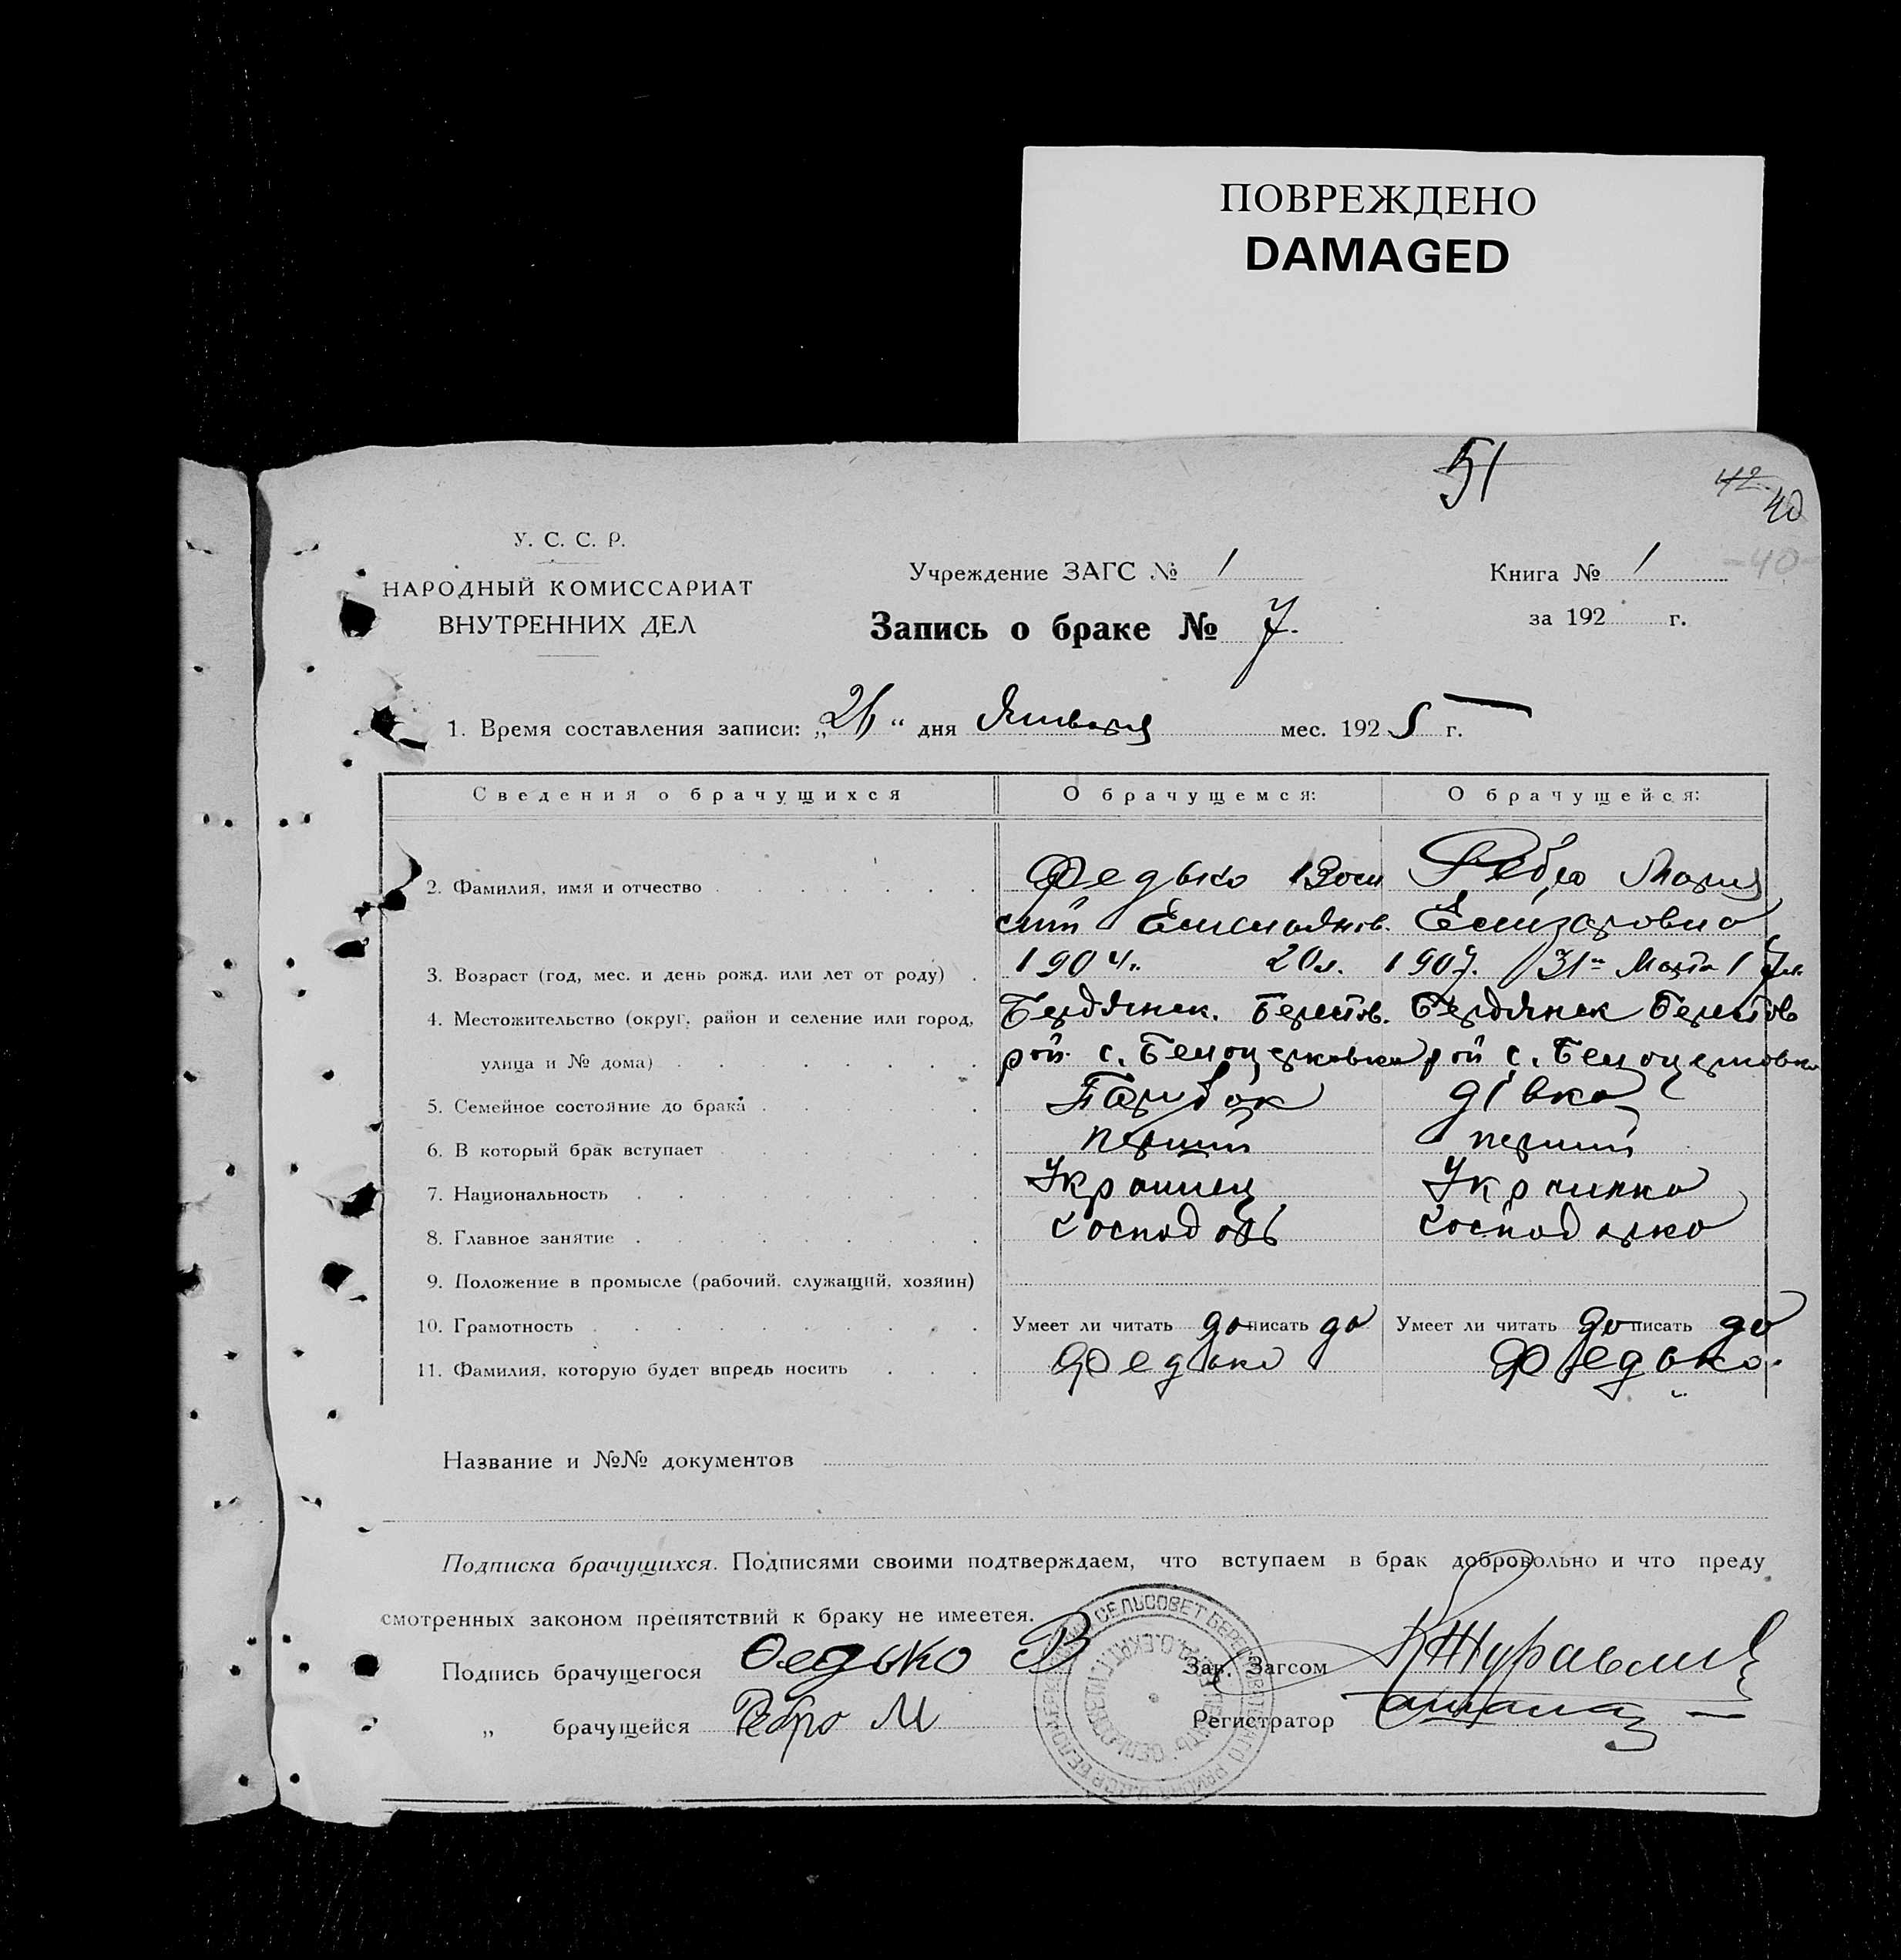 ПОВРЕЖДЕНО
DAMAGED
51
42
40
-40-
У. С. С. Р.
НАРОДНЫЙ КОМИССАРИАТ
ВНУТРЕННИХ ДЕЛ
Учреждение ЗАГС № 1
Книга № 1
Запись о браке № 7.
за 192 г.
1. Время составления записи: „26“ дня Января мес. 1925 г.
Сведения о брачущихся О брачущемся: О брачущейся:
2. Фамилия, имя и отчество Федько Васи Ребро Мария
слий Емельянов. Елизаровна
3. Возраст (год, мес. и день рожд. или лет от роду) 1904. 20л. 1907. 31го Марта 17л.
4. Местожительство (округ, район и селение или город, Бердянск. Берестов. Бердянск Берестов
улица и № дома) рай. с. Белоцерковка рай с. Белоцерковка
5. Семейное состояние до брака Парубок дівка
6. В который брак вступает перший перший
7. Национальность Украинец Украинка
8. Главное занятие Господарь Господарка
9. Положение в промысле (рабочий, служащий, хозяин)
10. Грамотность Умеет ли читать да писать да Умеет ли читать да писать да
11. Фамилия, которую будет впредь носить Федько Федько.
Название и №№ документов
Подписка брачущихся. Подписями своими подтверждаем, что вступаем в брак добровольно и что преду
смотренных законом препятствий к браку не имеется.
Подпись брачущегося Федько В Зав. Загсом
„ брачущейся Ребро М Регистратор
СЕЛЬСОВЕТ